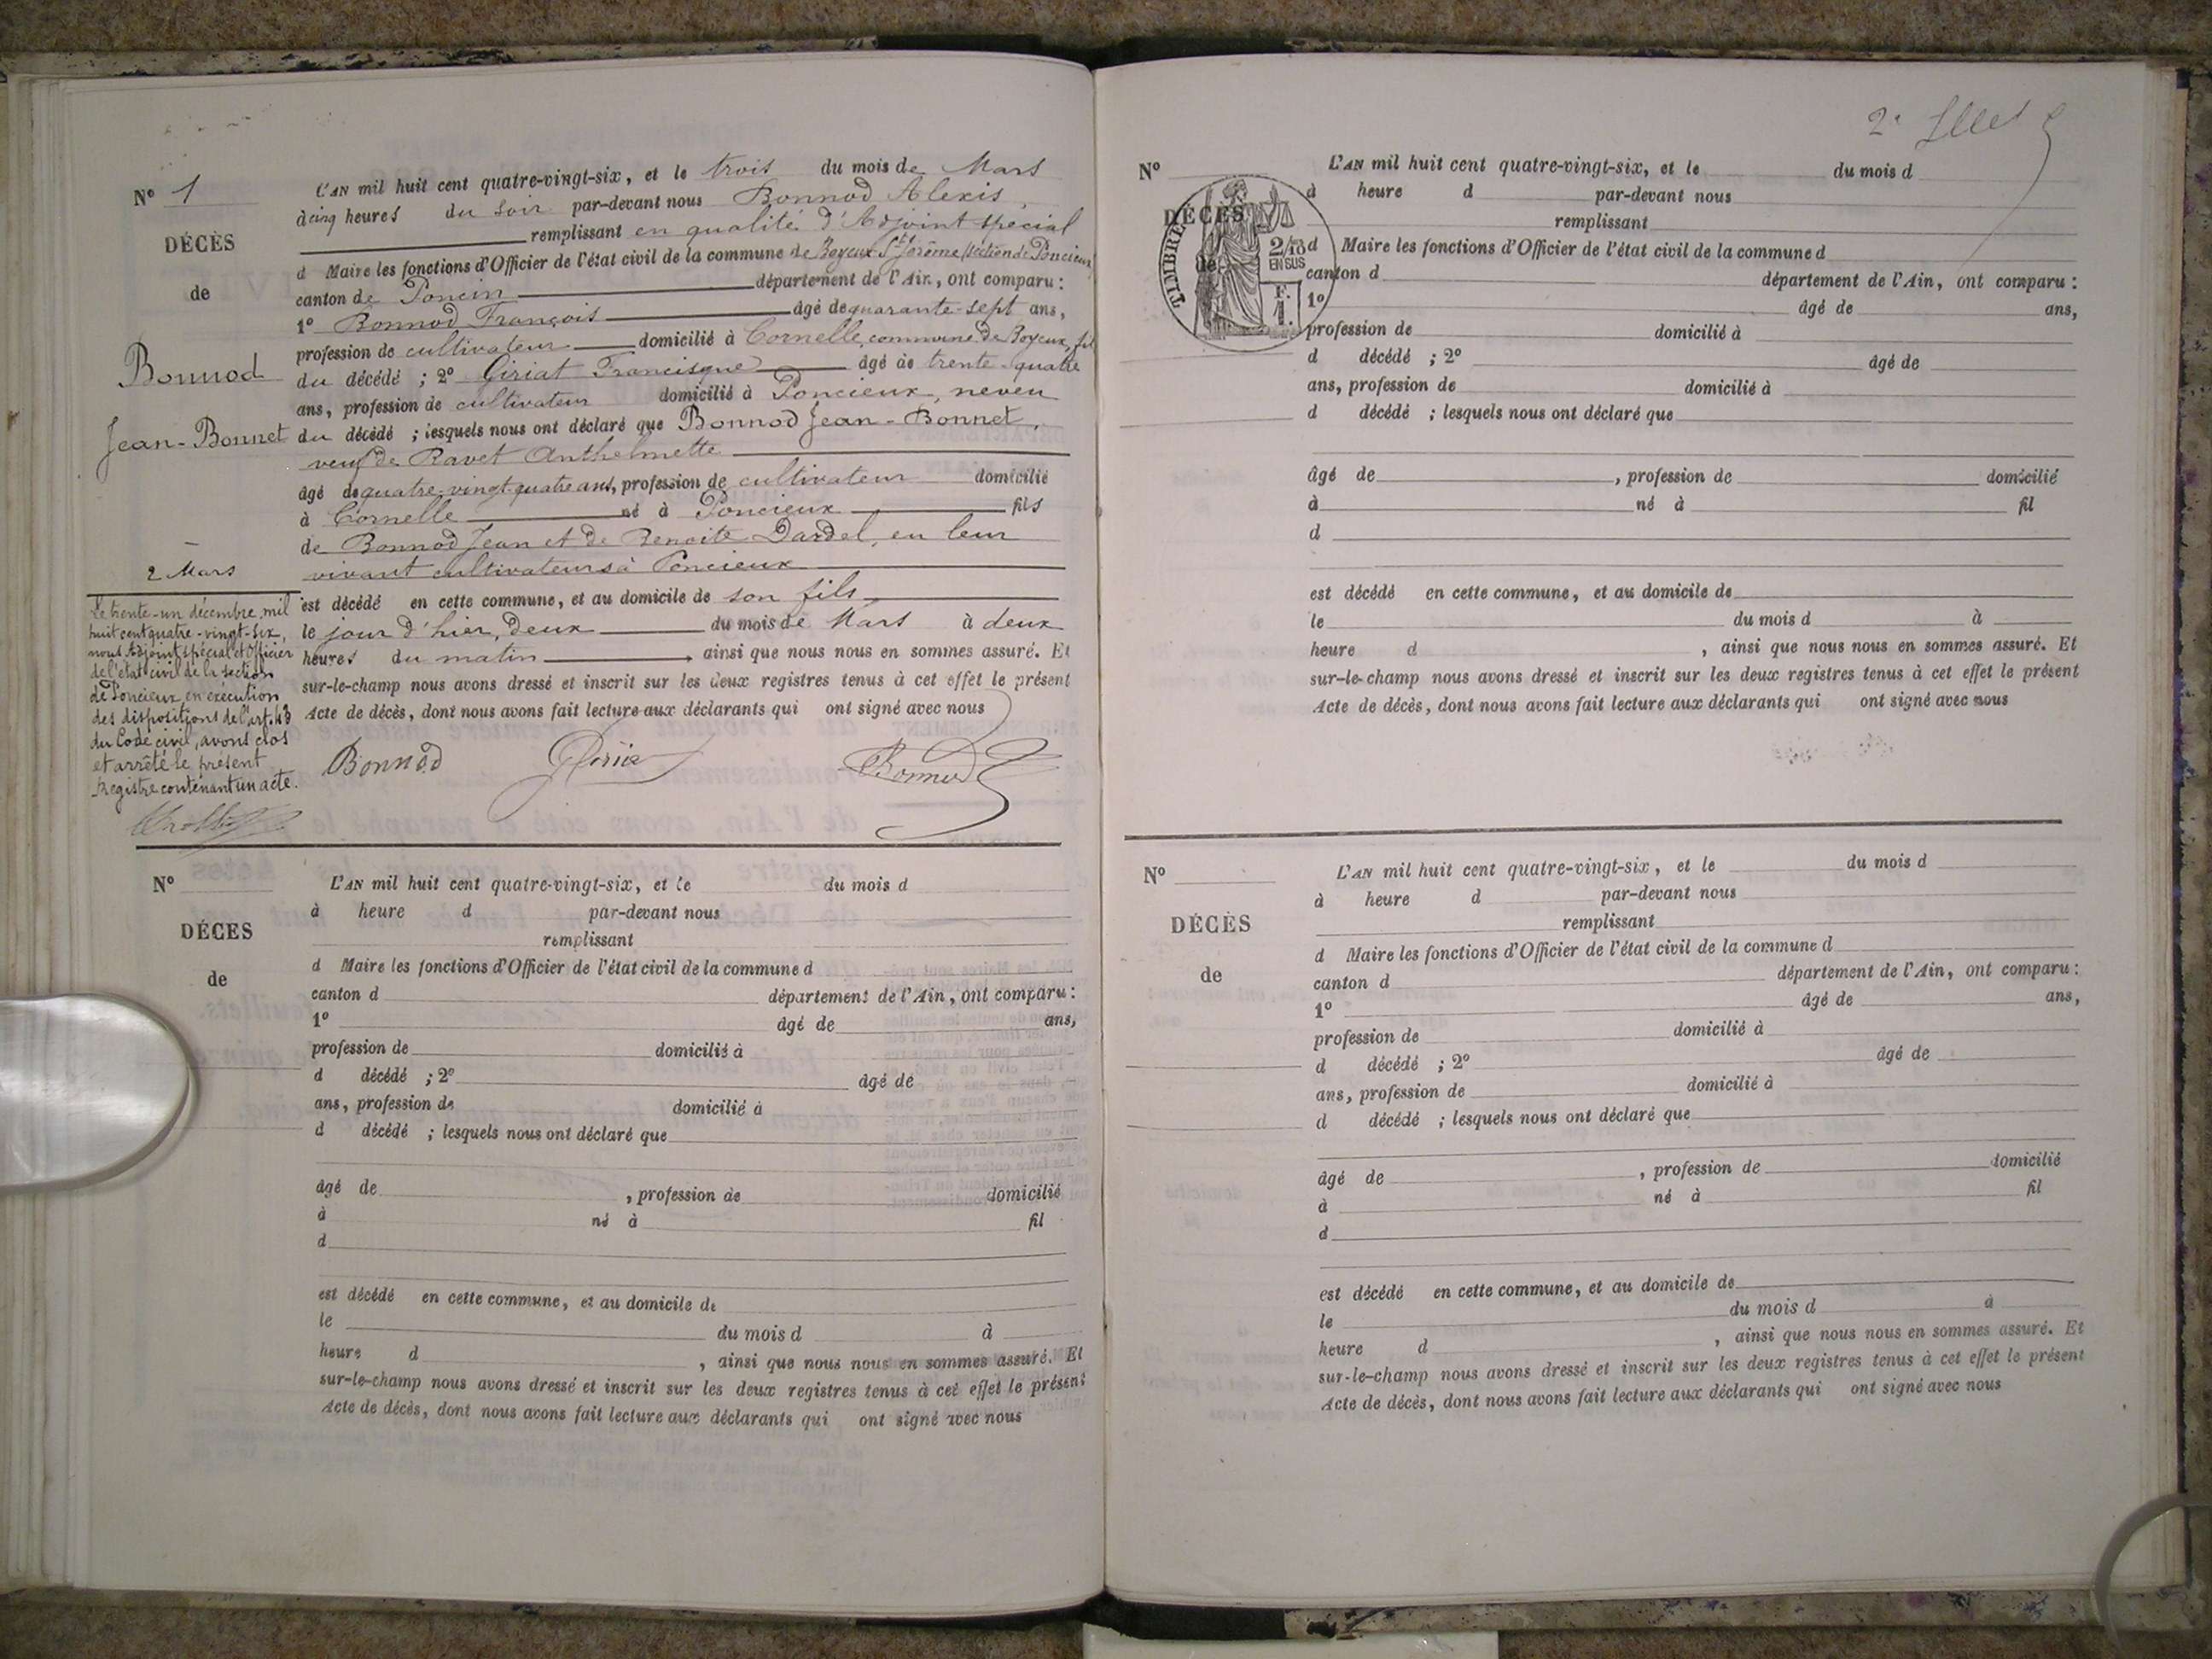 N° 1
DÉCÈS
de
Bonnod
Jean-Bonnet
2 Mars
L'AN mil huit cent quatre-vingt-six, et le trois du mois de Mars
à cinq heures du soir par-devant nous Bonnod Alexis,
remplissant en qualité d'Adjoint spécial
d Maire les fonctions d'Officier de l'état civil de la commune de Boyeux-St Jérôme (section de Poncieux)
canton de Poncin département de l'Ain, ont comparu :
1° Bonnod François âgé de quarante-sept ans,
profession de cultivateur domicilié à Cornelle, commune de Boyeux, fils
du décédé ; 2° Giriat Francisque âgé de trente-quatre
ans, profession de cultivateur domicilié à Poncieux, neveu
du décédé ; lesquels nous ont déclaré que Bonnod Jean-Bonnet,
veuf de Ravet Anthelmette
âgé de quatre-vingt-quatre ans, profession de cultivateur domicilié
à Cornelle né à Poncieux fils
de Bonnod Jean et de Benoite Dardel, en leur
vivant cultivateurs à Poncieux
est décédé en cette commune, et au domicile de son fils
le jour d'hier, deux du mois de Mars à deux
heures du matin ainsi que nous nous en sommes assuré. Et
sur-le-champ nous avons dressé et inscrit sur les deux registres tenus à cet effet le présent
Acte de décès, dont nous avons fait lecture aux déclarants qui ont signé avec nous
Bonnod Giriat Bonnod
Le trente-un décembre mil
huit cent quatre-vingt-six,
nous Adjoint spécial et Officier
de l'état civil de la section
de Poncieux, en exécution
des dispositions de l'art. 43
du Code civil, avons clos
et arrêté le présent
Registre contenant un acte.
N°
DÉCES
de
L'AN mil huit cent quatre-vingt-six, et le du mois d
à heure d par-devant nous
remplissant
d Maire les fonctions d'Officier de l'état civil de la commune d
canton d département de l'Ain, ont comparu :
1° âgé de ans,
profession de domicilié à
d décédé ; 2° âgé de
ans, profession de domicilié à
d décédé ; lesquels nous ont déclaré que
âgé de , profession de domicilié
à né à fil
d
est décédé en cette commune, et au domicile de
le du mois d à
heure d , ainsi que nous nous en sommes assuré. Et
sur-le-champ nous avons dressé et inscrit sur les deux registres tenus à cet effet le présent
Acte de décès, dont nous avons fait lecture aux déclarants qui ont signé avec nous
2e
N°
DÉCÈS
de
TIMBRE
2/10
EN SUS
F.
1.
L'AN mil huit cent quatre-vingt-six, et le du mois d
à heure d par-devant nous
remplissant
d Maire les fonctions d'Officier de l'état civil de la commune d
canton d département de l'Ain, ont comparu :
1° âgé de ans,
profession de domicilié à
d décédé ; 2° âgé de
ans, profession de domicilié à
d décédé ; lesquels nous ont déclaré que
âgé de , profession de domicilié
à né à fil
d
est décédé en cette commune, et au domicile de
le du mois d à
heure d , ainsi que nous nous en sommes assuré. Et
sur-le-champ nous avons dressé et inscrit sur les deux registres tenus à cet effet le présent
Acte de décès, dont nous avons fait lecture aux déclarants qui ont signé avec nous
N°
DÉCÈS
de
L'AN mil huit cent quatre-vingt-six, et le du mois d
à heure d par-devant nous
remplissant
d Maire les fonctions d'Officier de l'état civil de la commune d
canton d département de l'Ain, ont comparu :
1° âgé de ans,
profession de domicilié à
d décédé ; 2° âgé de
ans, profession de domicilié à
d décédé ; lesquels nous ont déclaré que
âgé de , profession de domicilié
à né à fil
d
est décédé en cette commune, et au domicile de
le du mois d à
heure d , ainsi que nous nous en sommes assuré. Et
sur-le-champ nous avons dressé et inscrit sur les deux registres tenus à cet effet le présent
Acte de décès, dont nous avons fait lecture aux déclarants qui ont signé avec nous